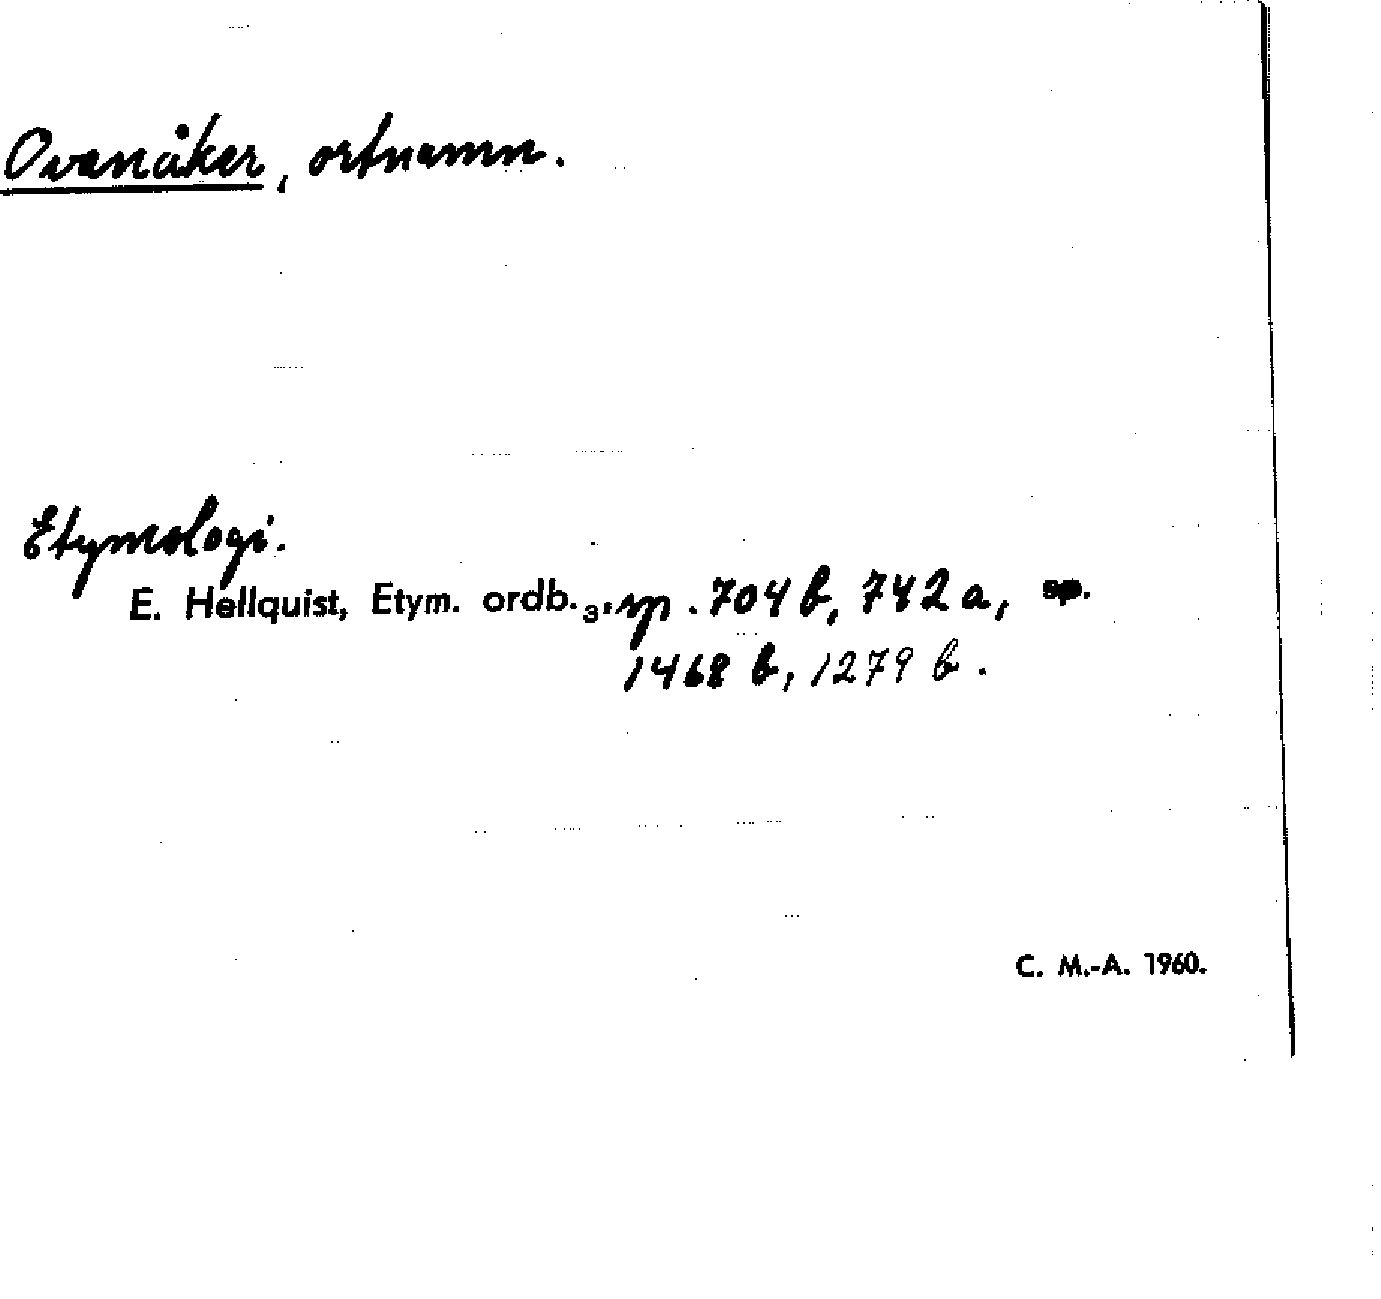 Ovanåker, ortnamn.
Etymologi.
E. Hellquist, Etym. ordb.₃, sp. 704 b, 742 a,
1468 b, 1279 b.
C. M.-A. 1960.